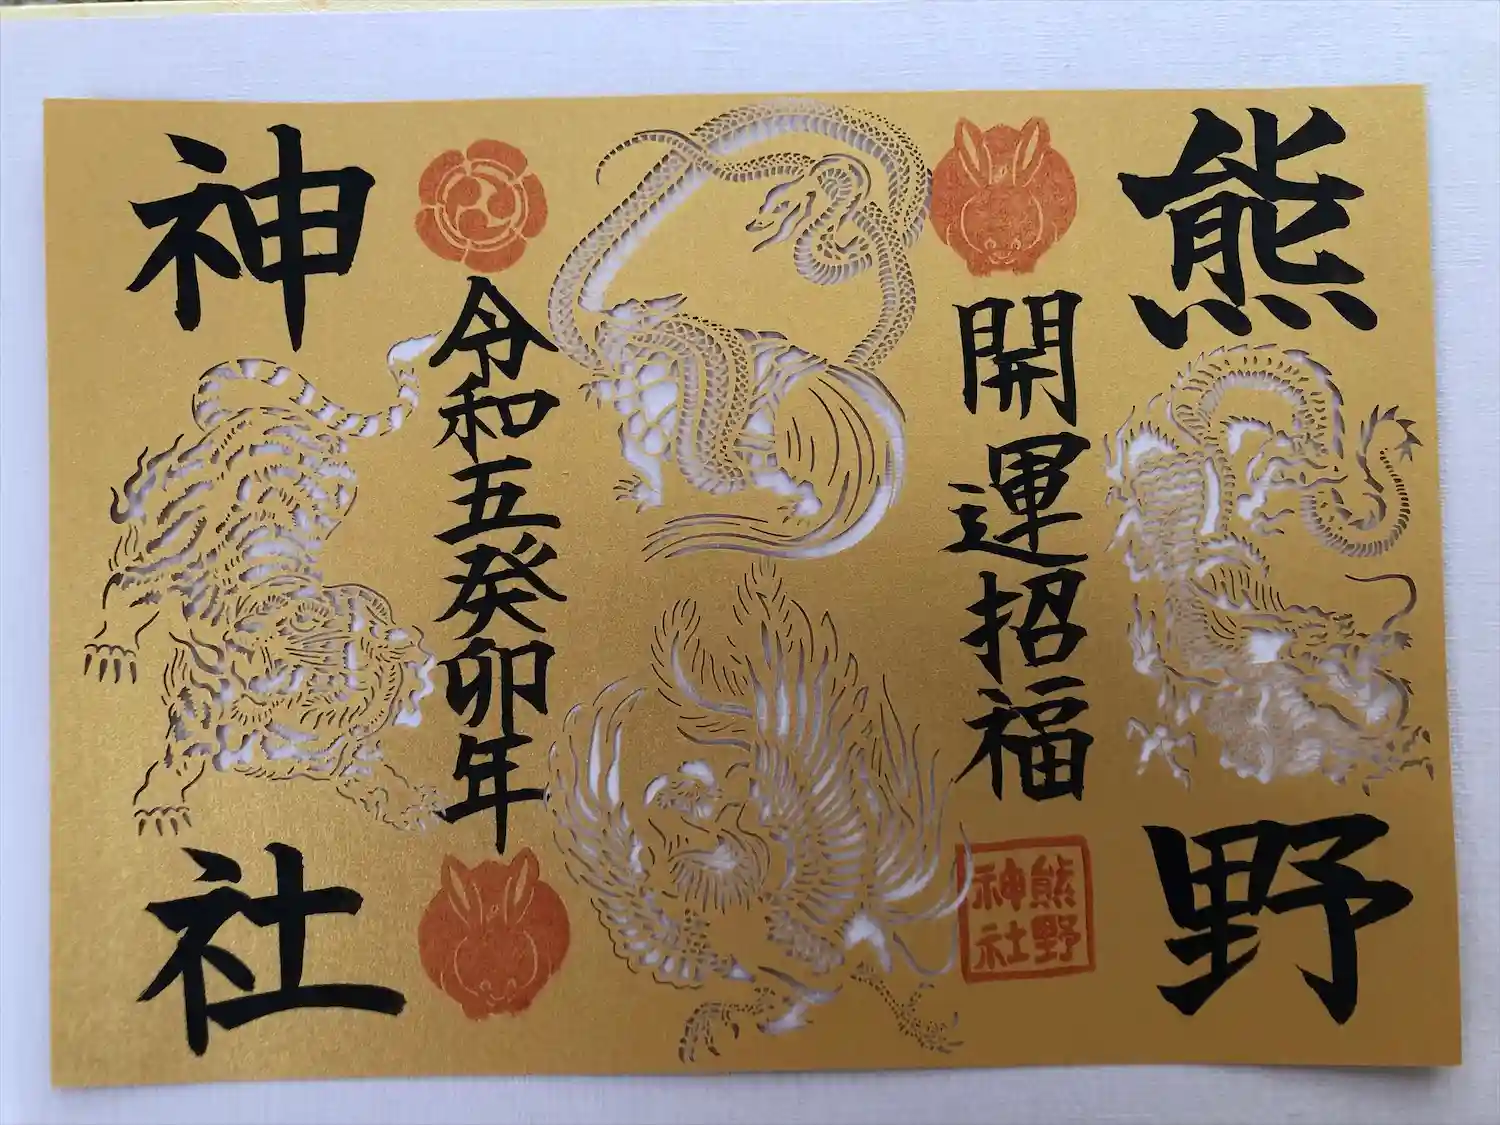 熊野
開運招福
熊野
神社
令和五癸卯年
神社